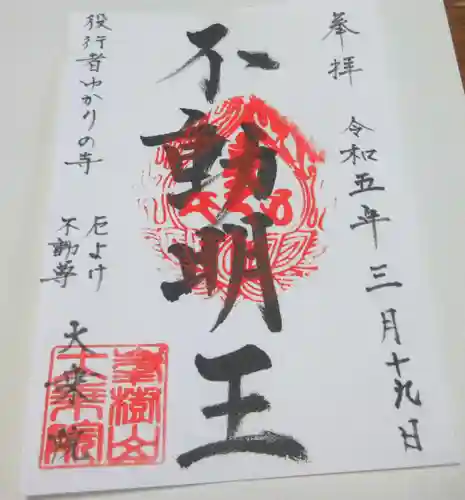 奉拝
令和五年三月十九日
不動明王
役行者ゆかりの寺
厄よけ
不動尊
大乗院